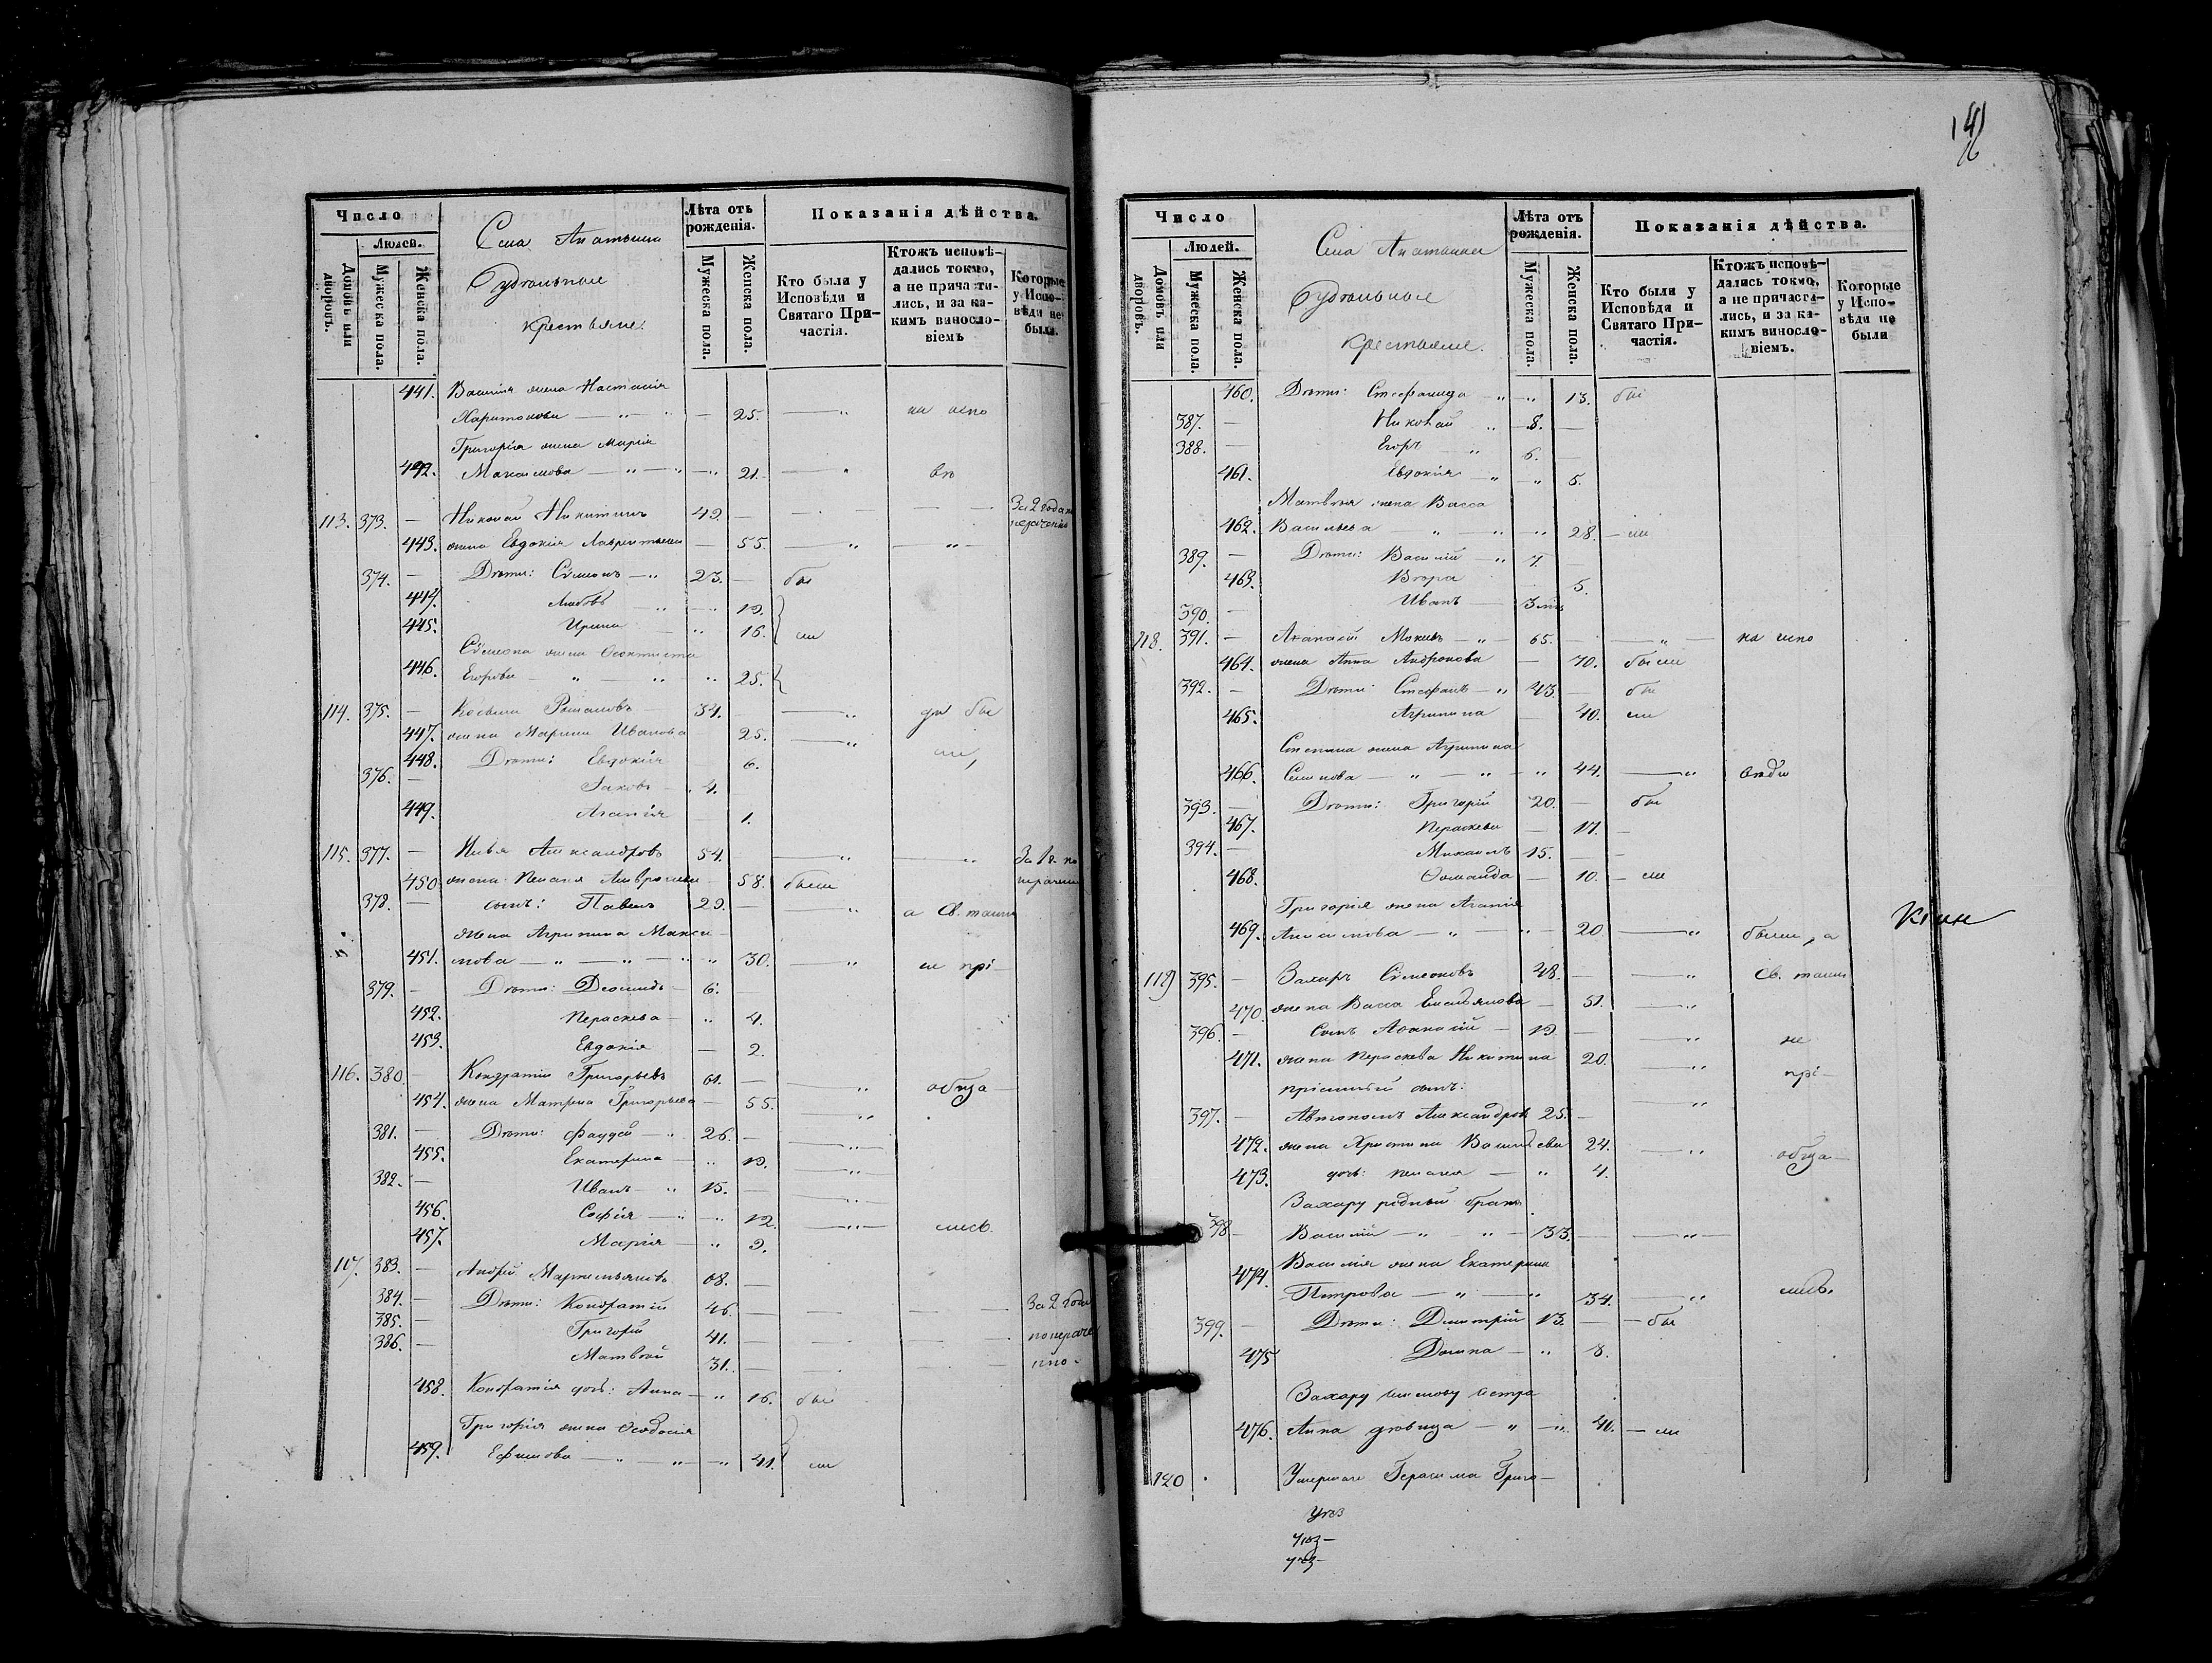 Число
Людей.
Домовъ или дворовъ.
Мужеска пола.
Женска пола.
Села
Удѣльные
крестьяне.
Лѣта отъ рожденія.
Мужеска пола.
Женска пола.
Показанія дѣйства.
Кто были у Исповѣди и Святаго Причастія.
Ктожъ исповѣдались токмо, а не причастились, и за какимъ винословіемъ
Которые у Исповѣди не были.
441. Василія жена Настасія
Харитонова — 25.
Григорія жена Марія
442. Максимова — 21.
113. 373. — Николай Никитинъ 49. — За 2 года
443. жена Евдокія Лаврентьева — 55.
374. — Дѣти: Сѵмеонъ 23. — бы
444. Любовь — 19.
445. Ирина — 16. ли
Сѵмеона жена Ѳеоктиста
446. Егорова — 25.
114. 375. — Косьма 34. — бы
447. жена Марина Иванова 25.
448. Дѣти: Евдокія 6. ли,
376. — Іаковъ 4.
449. Агапія 1.
115. 377. — Илья Александровъ 54.
450. жена Пелагія — 58. были
378. — сынъ: Павелъ 29. — а Св. таинъ
жена Агрипина Макси-
451. мова — 30. не прі-
379. — Дѣти: Діомидъ 6.
452. Параскева — 4.
453. Евдокія — 2.
116. 380. — Кондратій Григорьевъ 61. — обща-
454. жена Матрена Григорьева — 55.
381. — Дѣти: Фаддей 26.
455. Екатерина — 19.
382. — Иванъ 15.
456. Софія — 12. лись.
457. Марія — 9.
117. 383. — Андрей 68.
384. — Дѣти: Кондратій 46. — За 2 года
385. — Григорій 41.
386. — Матвѣй 31.
458. Кондратія дочь: Анна — 16. бы
Григорія жена Ѳеодосія
459. Ефимова — 41. ли
141
Число
Людей.
Домовъ или дворовъ.
Мужеска пола.
Женска пола.
Села
Удѣльные
крестьяне.
Лѣта отъ рожденія.
Мужеска пола.
Женска пола.
Показанія дѣйства.
Кто были у Исповѣди и Святаго Причастія.
Ктожъ исповѣдались токмо, а не причастились, и за какимъ винословіемъ.
Которые у Исповѣди не были
460. Дѣти: Стефанида — 13. бы
387. — Николай 8. —
388. — Егоръ 6. —
461. Евдокія — 5.
Матвѣя жена Васса
462. Васильева — 28. — ли
389. — Дѣти: Василій 7. —
463. Вѣра 5.
390. — Иванъ 3
118. 391. — Аѳанасій 65.
464. жена Анна Андронова — 70. были
392. — Дѣти: Стефанъ 43 — бы
465. Агрипина 40. ли
Стефана жена Агрипина
466. Семенова — 44.
393. — Дѣти: Григорій 20. — бы
467. Параскева — 17. —
394. — Михаилъ 15. —
468. Ѳомаида — 10. — ли
Григорія жена Агапія
469. — 20. были, а
119 395. — Захаръ Сѵмеоновъ 48. — Св. таинъ
470. жена Васса Емельянова — 51.
396. — Сынъ Аѳанасій — 19. — не
471. жена Параскева Никитина 20. прі-
пріемный сынъ:
397. — Автономъ Александровъ 25. —
472. жена Христина Васильева 24. обща-
473. дочь: Пелагія — 4.
Захару родный братъ
398 — Василій — 33. —
Василія жена Екатерина
474. Петрова — 34. лись.
399. — Дѣти: Димитрій 13. — бы
475 Домна — 8.
Захару сестра
476. Анна дѣвица — 41. — ли
120 Умершаго Герасима Григо-